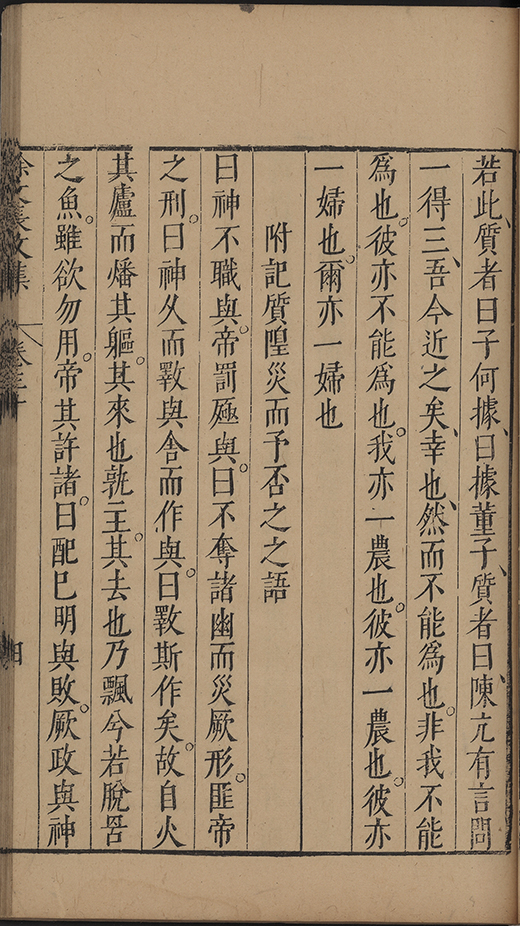 若此、質者曰子何據、曰據董子、質者曰、陳亢有言問
一得三、吾今近之矣、幸也、然而不能為也。非我不能
為也。彼亦不能為也。我亦一農也。彼亦一農也。彼亦
一婦也。爾亦一婦也
附記質隍災而予否之之語
曰神不職與。帝罰殛與。曰不奪諸幽而災厥形。匪帝
之刑。曰神久而斁與舍而作與。曰斁斯作矣。故自火
其廬而燔其軀。其來也孰主。其去也乃飄兮若脫筌
之魚。雖欲勿用。帝其許諸。曰配巳明與敗。厥政與神
徐文長文集
卷三十
四